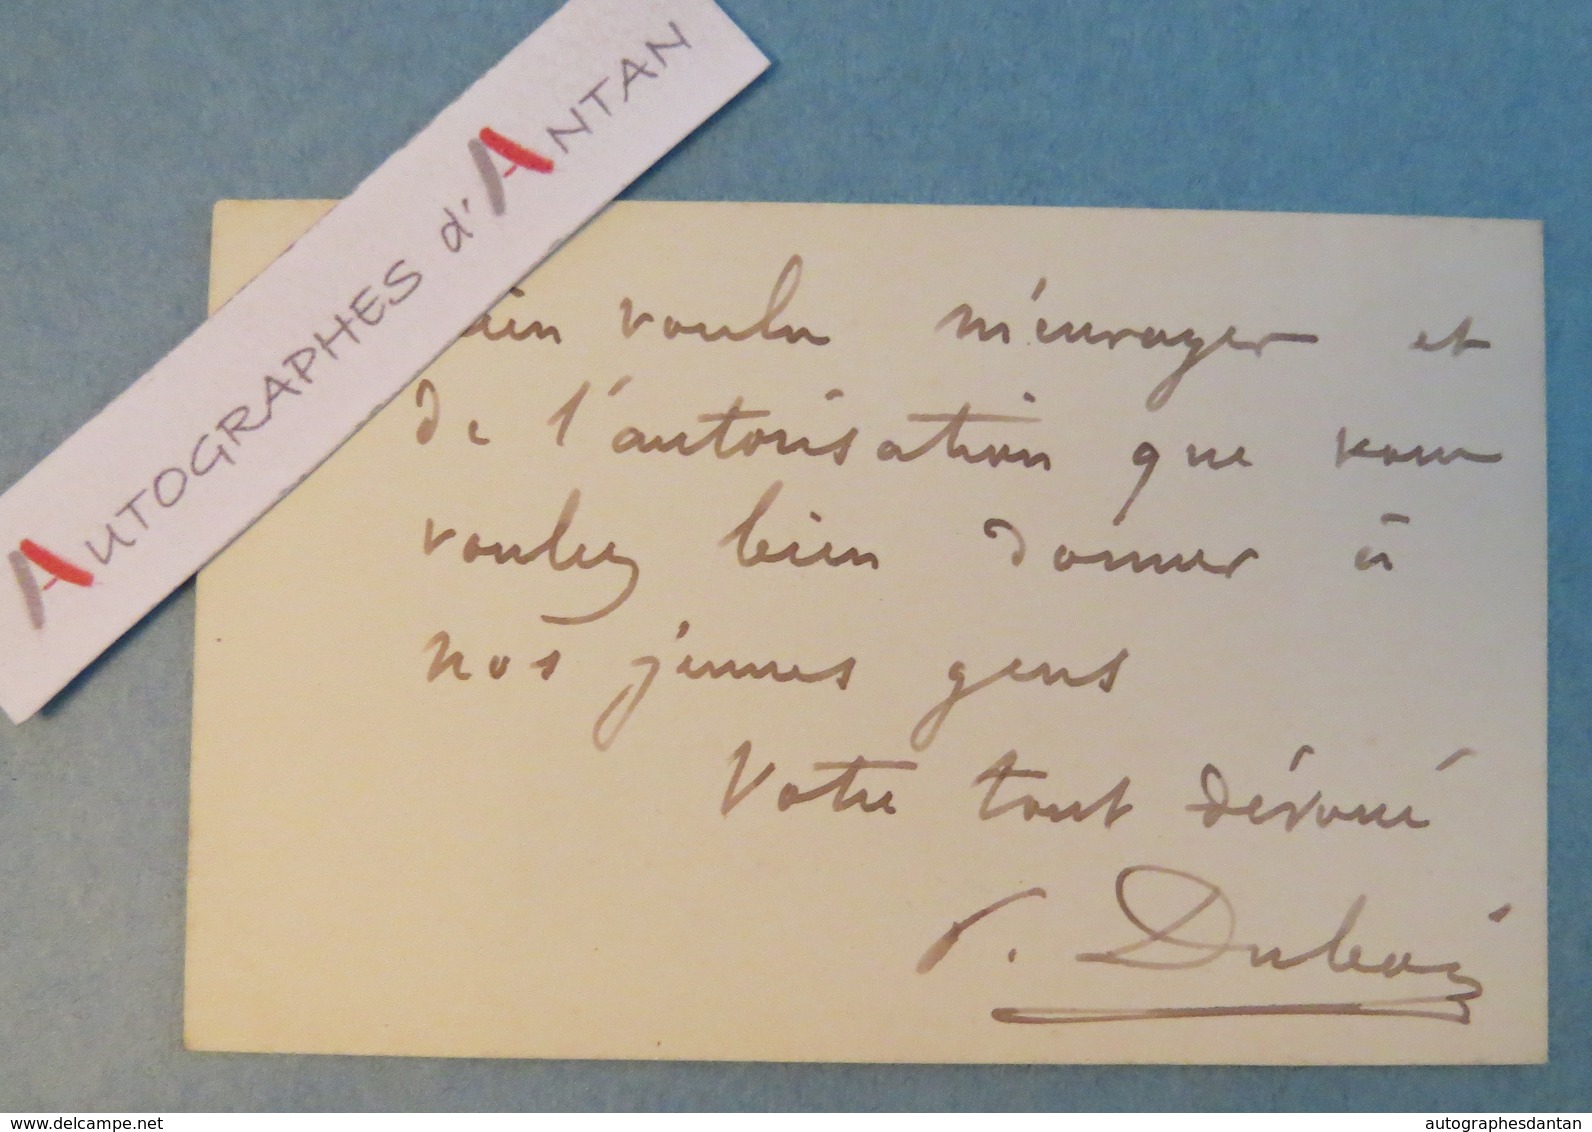 AUTOGRAPHES d'ANTAN
bien voulu m'envoyer et
de l'autorisation que vous
voulez bien donner à
nos jeunes gens
Votre tout dévoué
P. Dubois
www.delcampe.net
autographesdantan